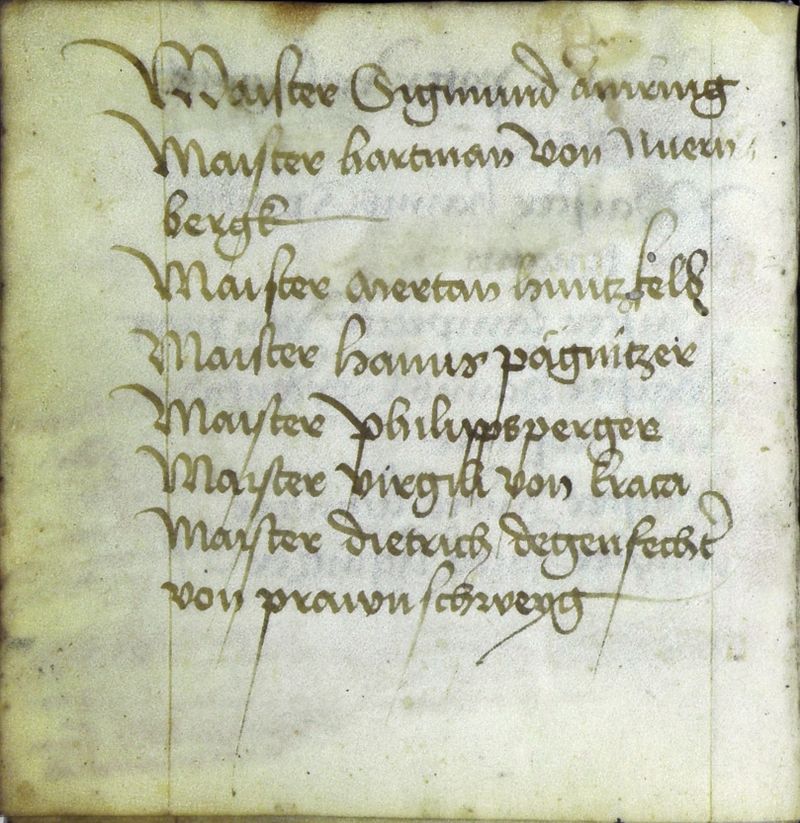 Maister Sigmund ainring
Maister hartman von Nuern
bergk
Maister mertan huntzfeld
Maister hanns pägnützer
Maister philippsperger
Maister virgili von kraca
Maister dietrich degenfechter
von prawnschweyg